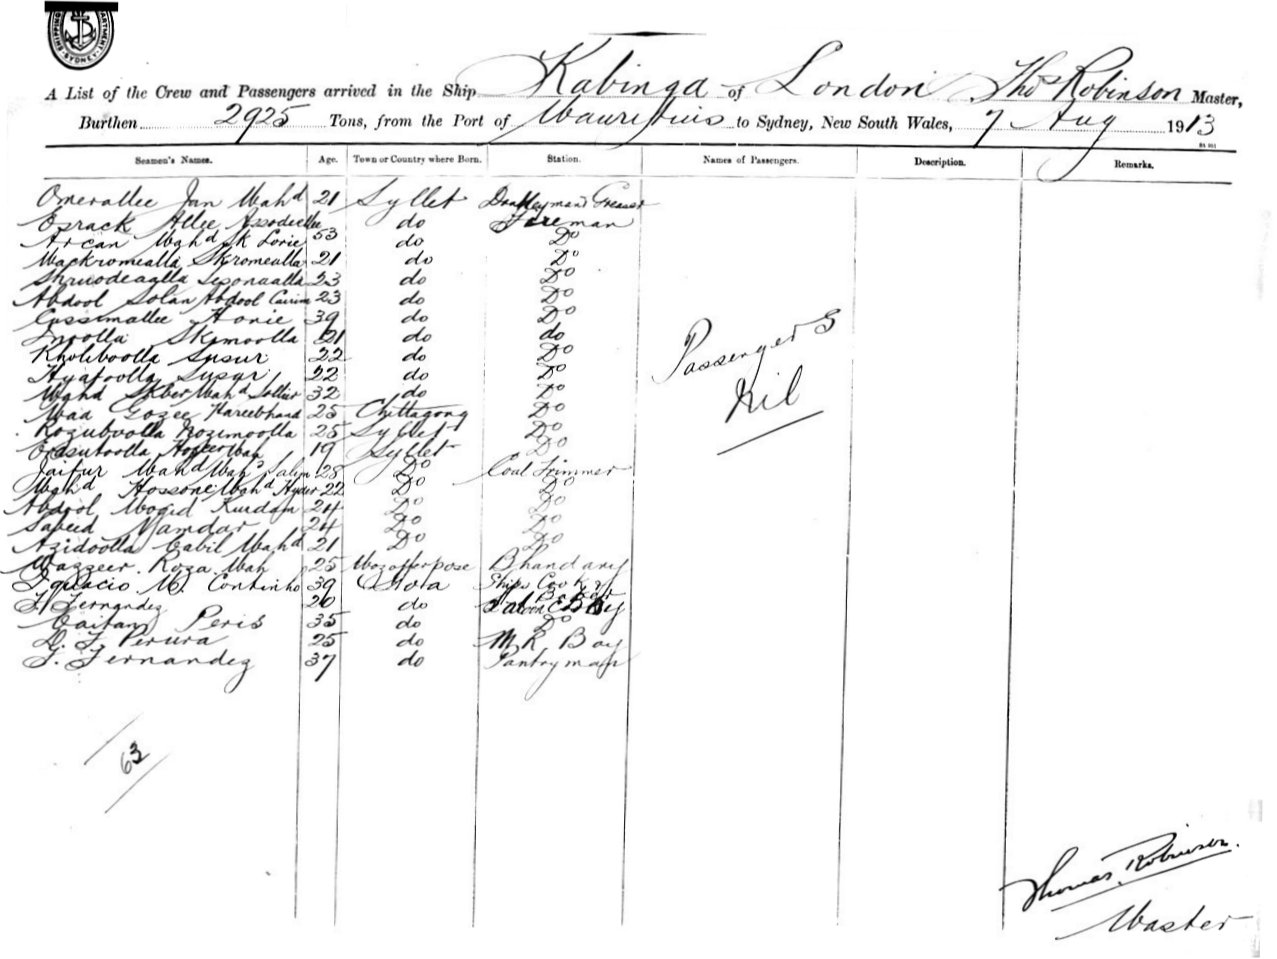 SHIPPING DEPARTMENT SYDNEY
A List of the Crew and Passengers arrived in the Ship Kabinga of London Thos Robinson Master,
Burthen 2925 Tons, from the Port of Mauritius to Sydney, New South Wales, 7 Aug 1913
Seamen's Names. Age. Town or Country where Born. Station. Names of Passengers. Description. Remarks.
Omerallee Jan Mahd 21 Syllet Donkeyman & Greaser
Esrack Allee do Fireman
Arcan Mahd Sk Lorie 53 do Do
Mackromealla Skromealla 21 do Do
23 do Do
Abdool Solan Abdool Carim 23 do Do
Cassimallee Honie 39 do Do
Inoolla Skamoolla 21 do do
Kholiboolla Susur 22 do Do
Hyatoolla Susur 22 do Do
Mahd Skber Mahd 32 do Do
Gozee 25 Chittagong Do
Rozuboolla Nozimoolla 25 Syllet Do
19 Syllet Do
Jaifur Mahd 28 Do Coal Trimmer
Mahd Hossone Mahd Hyder 22 Do Do
Abdool Mogid Kurdan 24 Do Do
Sabeed Namdar 24 Do Do
Azidoolla Cabil Mahd 21 Do Do
Wazzeer Roza Mah 25 Mozafferpose Bhandary
Ignacio M. Continho 39 Goa Ships Cook &
F Fernandez 20 do Saloon Boy
Caitan Peris 35 do Do
D. F. Perura 25 do M R Boy
G. Fernandez 37 do Pantryman
Passengers
Nil
63
Thomas Robinson.
Master